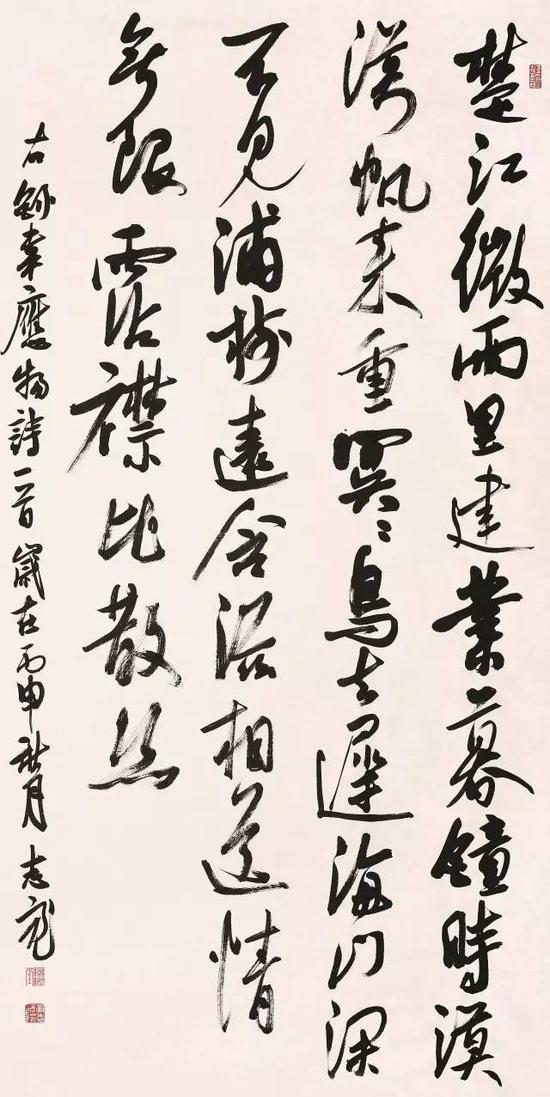 楚江微雨里建業暮鐘時漠
漠帆来重冥〻鳥去遲海门深
不見浦樹遠含滋相送情
無限霑襟比散絲
右鈔韋應物詩一首歲在丙申秋月志龍